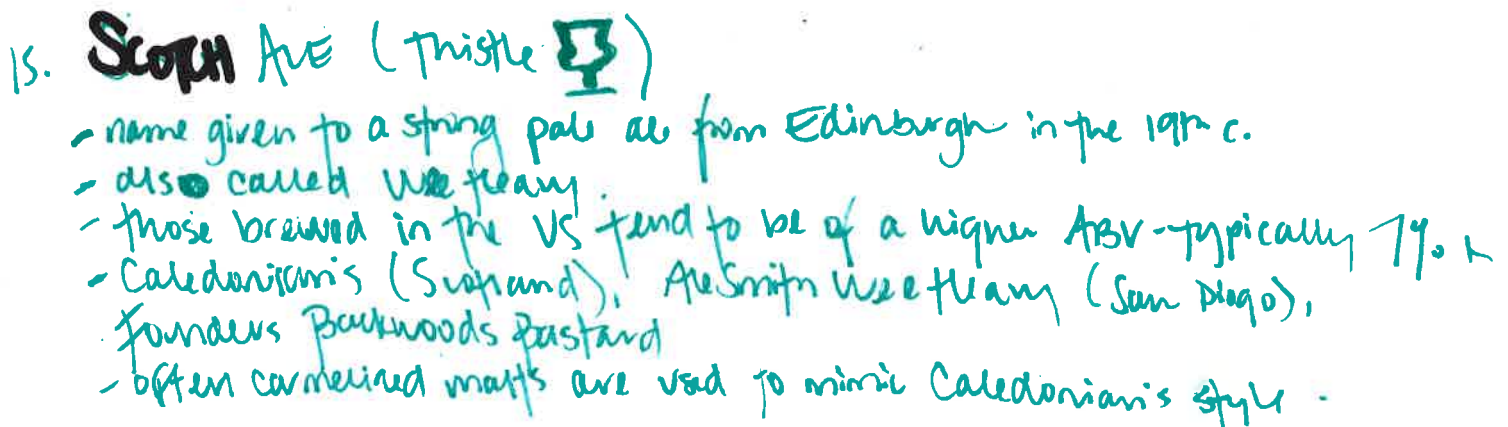 15. SCOTCH ALE (thistle )
- name given to a strong pale ale from Edinburgh in the 19th c.
- also called Wee Heavy
- those brewed in the US tend to be of a higher ABV - typically 7%
- Caledonian's (Scotland), AleSmith Wee Heavy (San Diego),
Founders Backwoods Bastard
- often carmelized malts are used to mimic Caledonian's style.